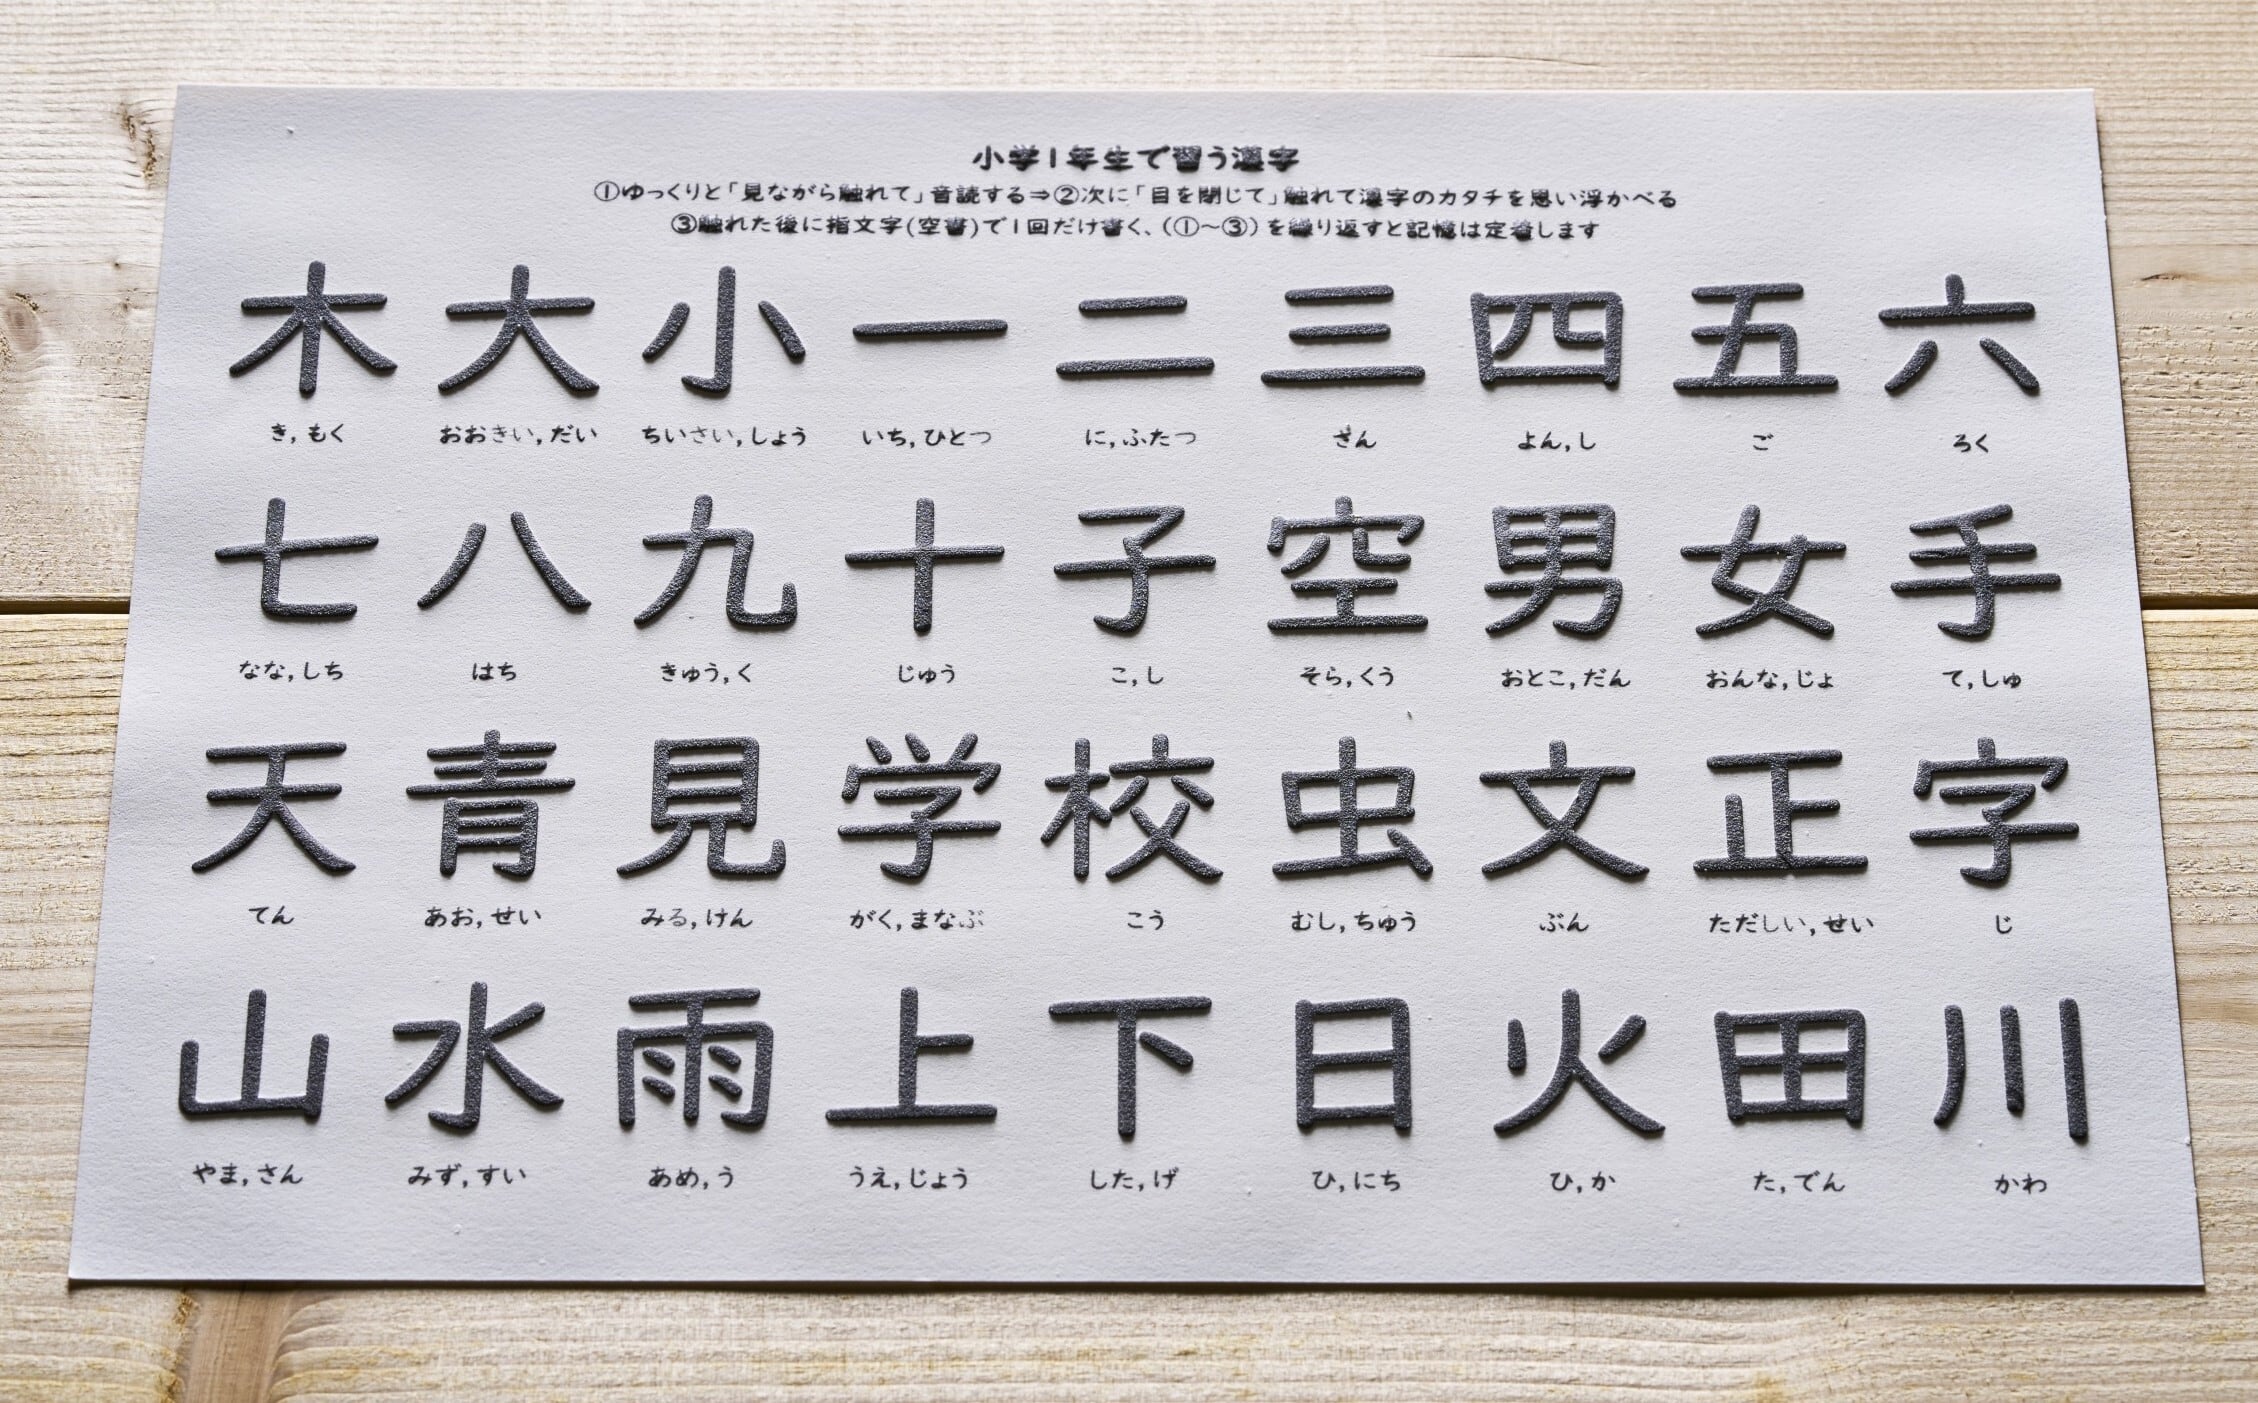 小学1年生で習う漢字
①ゆっくりと「見ながら触れて」音読する⇒②次に「目を閉じて」触れて漢字のカタチを思い浮かべる
③触れた後に指文字(空書)で1回だけ書く、(①〜③)を繰り返すと記憶は定着します
木 大 小 一 二 三 四 五 六
き,もく おおきい,だい ちいさい,しょう いち,ひとつ に,ふたつ さん よん,し ご ろく
七 八 九 十 子 空 男 女 手
なな,しち はち きゅう,く じゅう こ,し そら,くう おとこ,だん おんな,じょ て,しゅ
天 青 見 学 校 虫 文 正 字
てん あお,せい みる,けん がく,まなぶ こう むし,ちゅう ぶん ただしい,せい じ
山 水 雨 上 下 日 火 田 川
やま,さん みず,すい あめ,う うえ,じょう した,げ ひ,にち ひ,か た,でん かわ